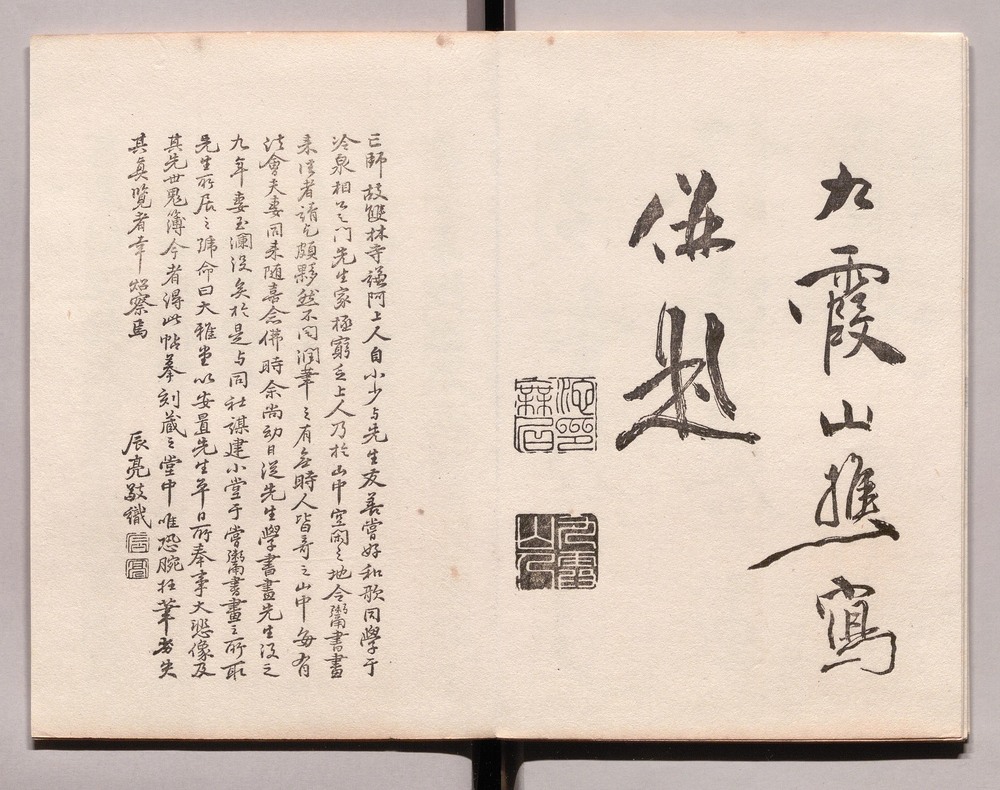 九霞山樵寫
併題
亡師故雙林寺謙阿上人自小少与先生友善嘗好和歌同學于
冷泉相公之門先生家極窮乏上人乃於山中空閑之地令鬻書畫
来往者請乞頗夥然不問潤筆之有無時人皆奇之山中每有
法會夫妻同来随喜念佛時余尚幼日從先生學書畫先生没之
九年妻玉瀾没矣於是与同社謀建小堂于嘗鬻書畫之所取
先生所居之號命曰大雅堂以安置先生平日所奉事大悲像及
其先世鬼簿今者得此帖摹刻蔵之堂中唯恐腕拄筆劣失
其真覧者幸炤察焉
辰亮敬識